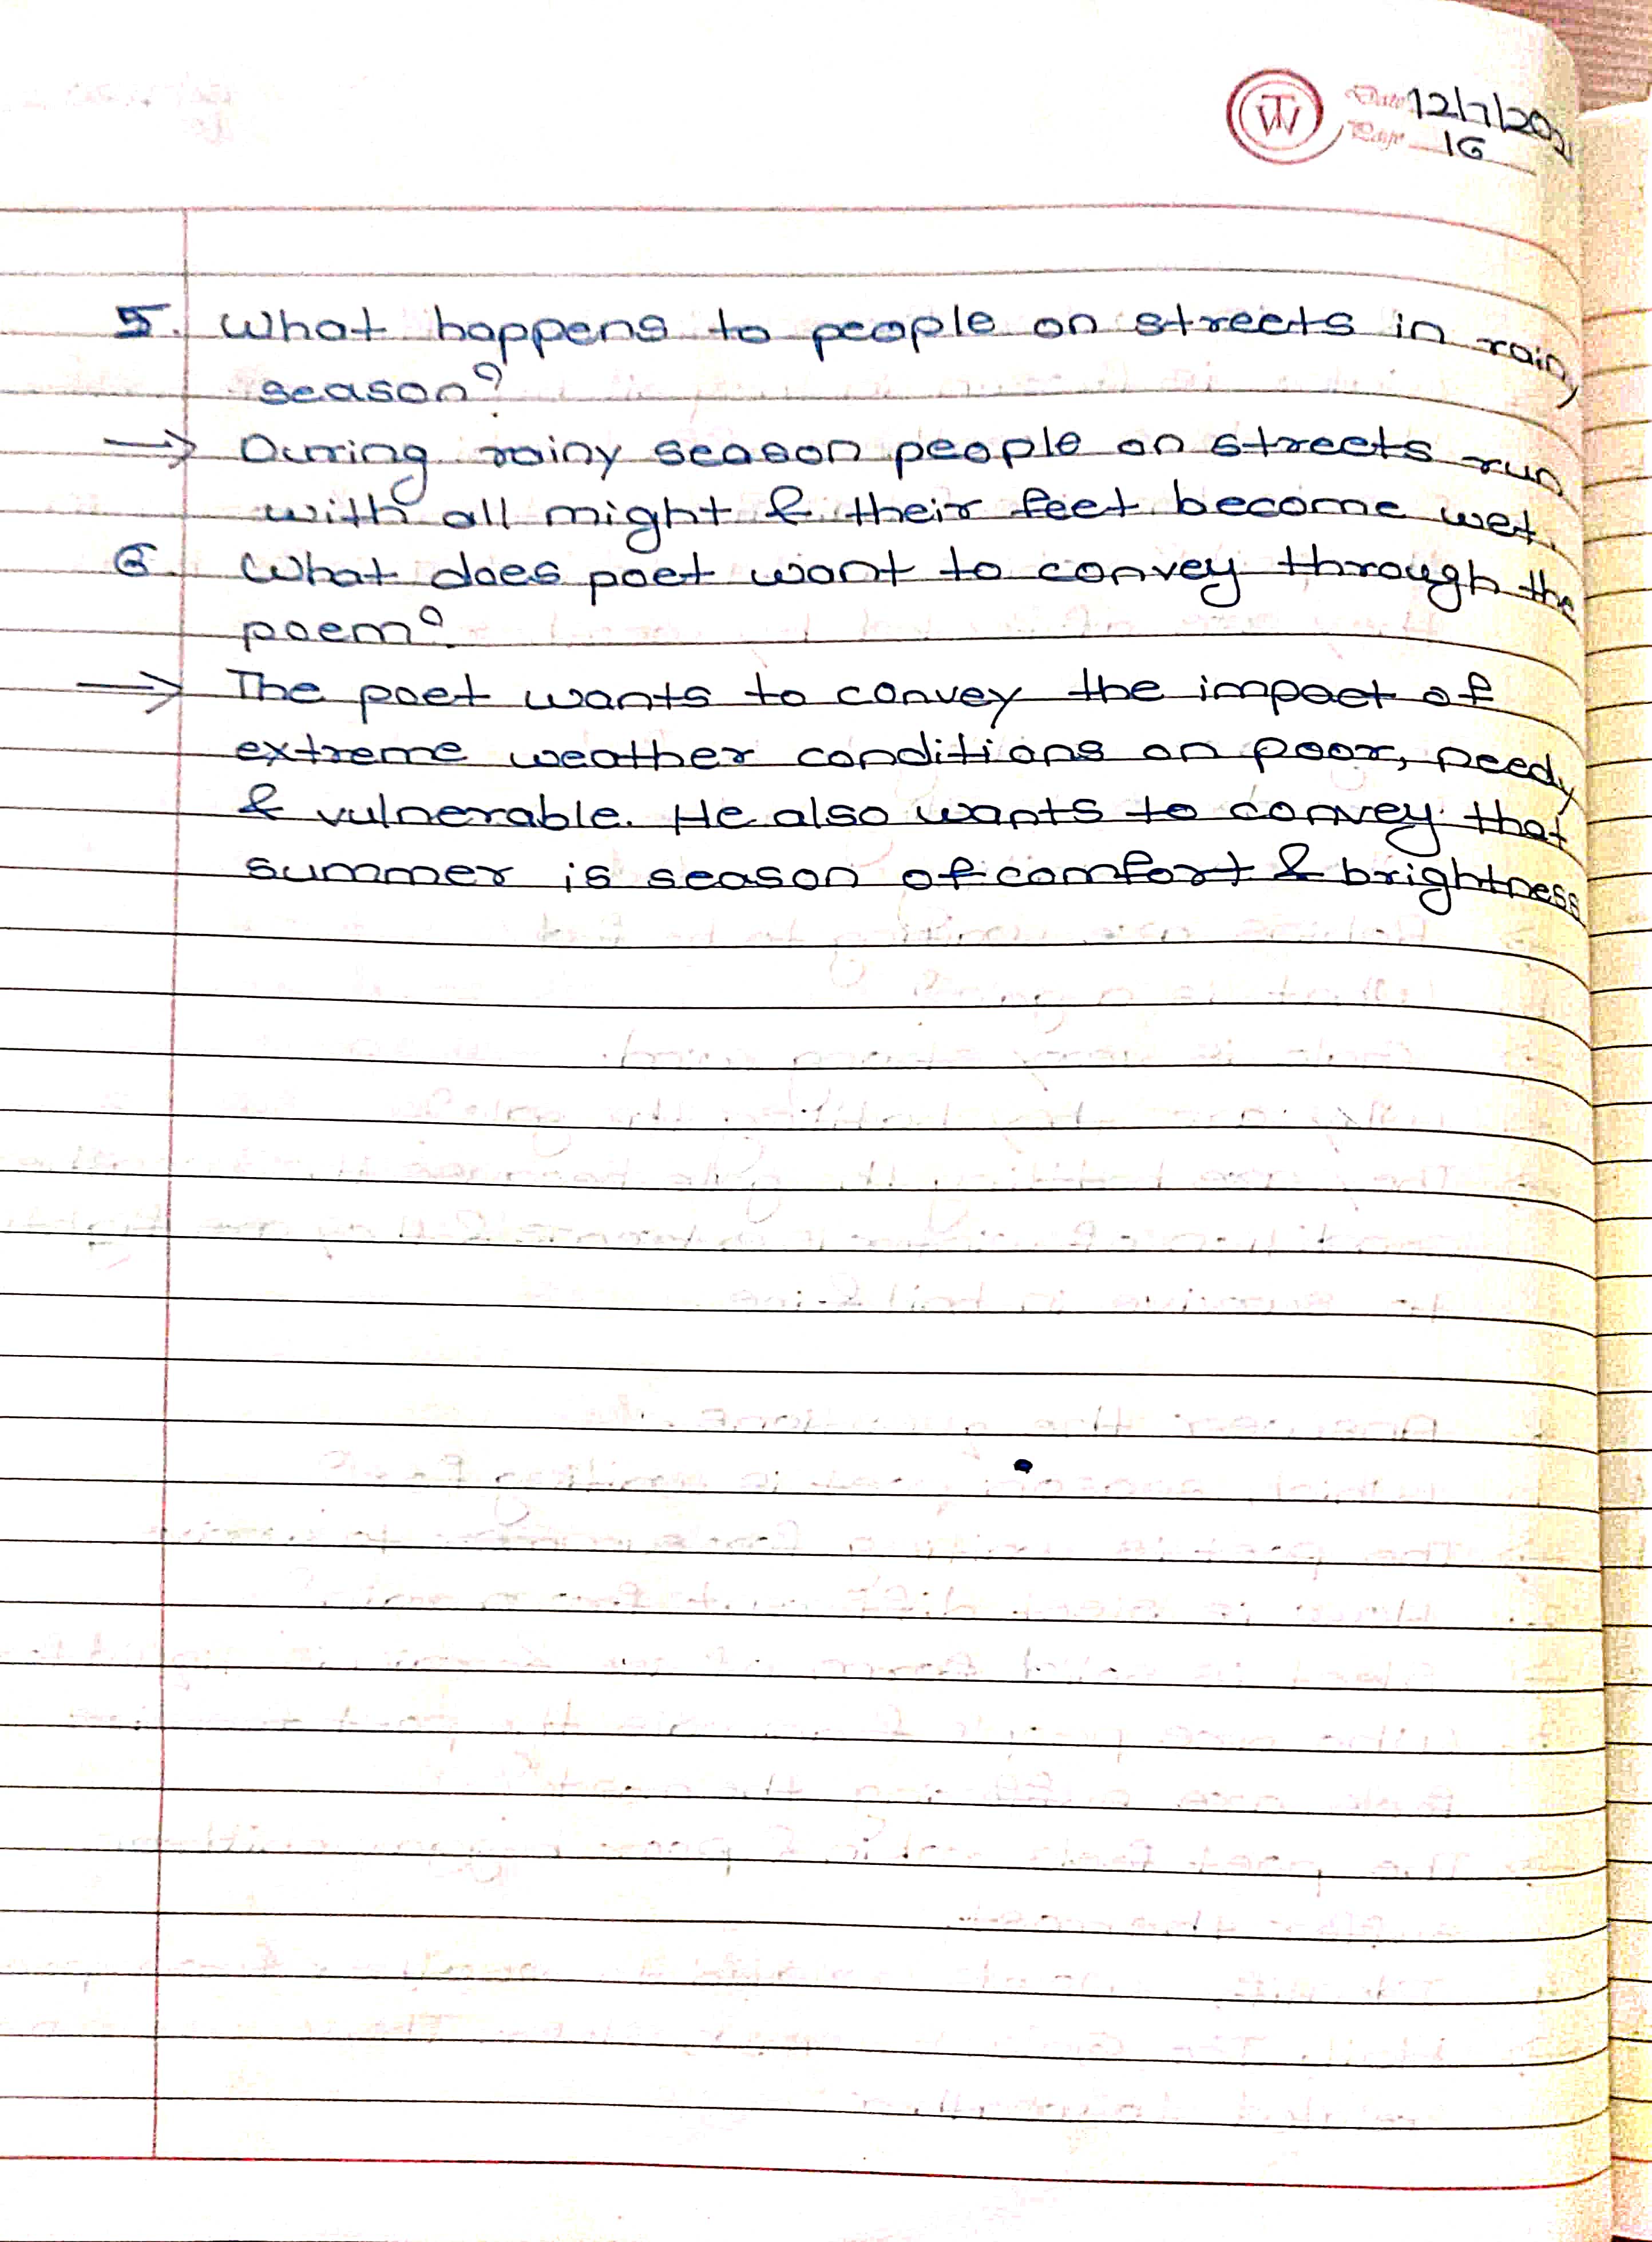 TW
Date 12/7/202
Page 16
5. What happens to people on streets in rainy
season?
→ During rainy season people on streets run
with all might & their feet become wet.
6. What does poet want to convey through the
poem?
→ The poet wants to convey the impact of
extreme weather conditions on poor, needy
& vulnerable. He also wants to convey that
summer is season of comfort & brightness